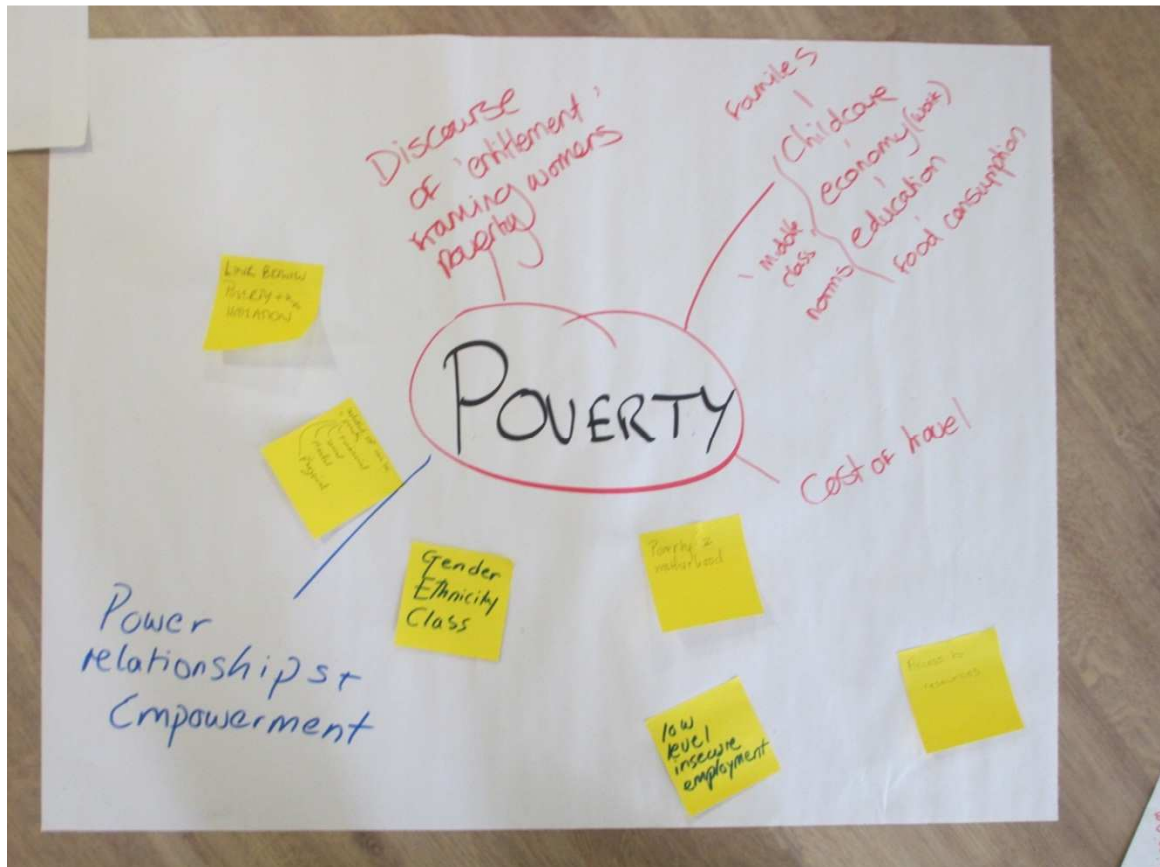 Discourse
of 'entitlement'
framing womens
Poverty
Families
Childcare
economy (work)
education
food consumption
'middle
class'
norms
LINK BETWEEN
POVERTY +
POVERTY
Cost of travel
Gender
Ethnicity
Class
Poverty &
motherhood
Power
relationships +
Empowerment
low
level
insecure
employment
Access to
resources